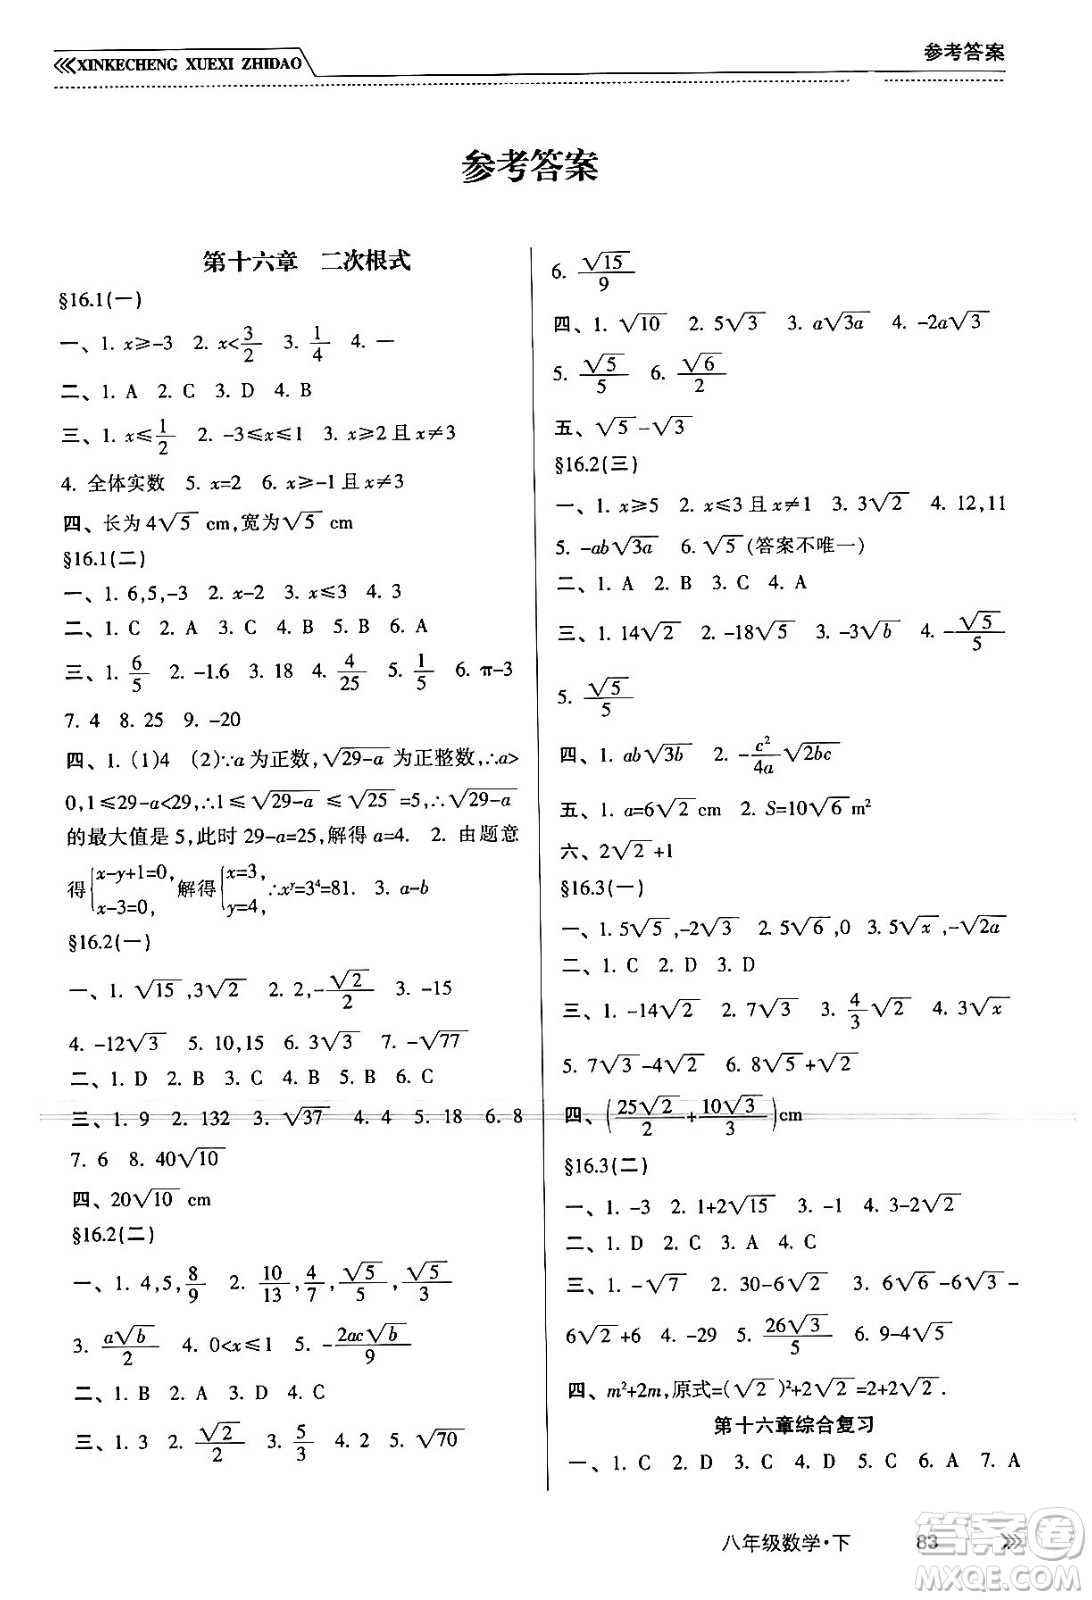 XINKECHENG XUEXI ZHIDAO
参考答案
参考答案
第十六章 二次根式
§16.1(一)
一、1. x≥-3 2. x<3/2 3. 1/4 4. 一
二、1. A 2. C 3. D 4. B
三、1. x≤1/2 2. -3≤x≤1 3. x≥2且x≠3
4. 全体实数 5. x=2 6. x≥-1且x≠3
四、长为4√5 cm,宽为√5 cm
§16.1(二)
一、1. 6,5,-3 2. x-2 3. x≤3 4. 3
二、1. C 2. A 3. C 4. B 5. B 6. A
三、1. 6/5 2. -1.6 3. 18 4. 4/25 5. 1/5 6. π-3
7. 4 8. 25 9. -20
四、1. (1)4 (2)∵a为正数,√(29-a)为正整数,∴a>
0,1≤29-a<29,∴1≤√(29-a)≤√25=5,∴√(29-a)
的最大值是5,此时29-a=25,解得a=4. 2. 由题意
得{x-y+1=0, x-3=0, 解得{x=3, y=4, ∴xʸ=3⁴=81. 3. a-b
§16.2(一)
一、1. √15,3√2 2. 2,-√2/2 3. -15
4. -12√3 5. 10,15 6. 3√3 7. -√77
二、1. D 2. B 3. C 4. A 5. B 6. C
三、1. 9 2. 132 3. √37 4. 4 5. 18 6. 8
7. 6 8. 40√10
四、20√10 cm
§16.2(二)
一、1. 4,5,8/9 2. 10/13,4/7,√5/5,√5/3
3. a√b/2 4. 0<x≤1 5. -2ac√b/9
二、1. B 2. A 3. D 4. C
三、1. 3 2. √2/2 3. 5/3 4. 2 5. √70
6. √15/9
四、1. √10 2. 5√3 3. a√3a 4. -2a√3
5. √5/5 6. √6/2
五、√5-√3
§16.2(三)
一、1. x≥5 2. x≤3且x≠1 3. 3√2 4. 12,11
5. -ab√3a 6. √5(答案不唯一)
二、1. A 2. B 3. C 4. A
三、1. 14√2 2. -18√5 3. -3√b 4. -√5/5
5. √5/5
四、1. ab√3b 2. -c²/4a√2bc
五、1. a=6√2cm 2. S=10√6m²
六、2√2+1
§16.3(一)
一、1. 5√5,-2√3 2. 5√6,0 3. 5√x,-√2a
二、1. C 2. D 3. D
三、1. -14√2 2. 7√3 3. 4/3√2 4. 3√x
5. 7√3-4√2 6. √3-√2
四、(25√2/2+10√3/3)cm
§16.3(二)
一、1. -3 2. 1+2√15 3. -1 4. 3-2√2
二、1. D 2. C 3. A 4. C
三、1. -√7 2. 30-6√2 3. 6√6-6√3-
6√2+6 4. -29 5. 26√3/5 6. 9-4√5
四、m²+2m,原式=(√2)²+2√2=2+2√2.
第十六章综合复习
一、1. C 2. D 3. C 4. D 5. C 6. A 7. A
八年级数学·下 83
答案圈
MXQE.COM